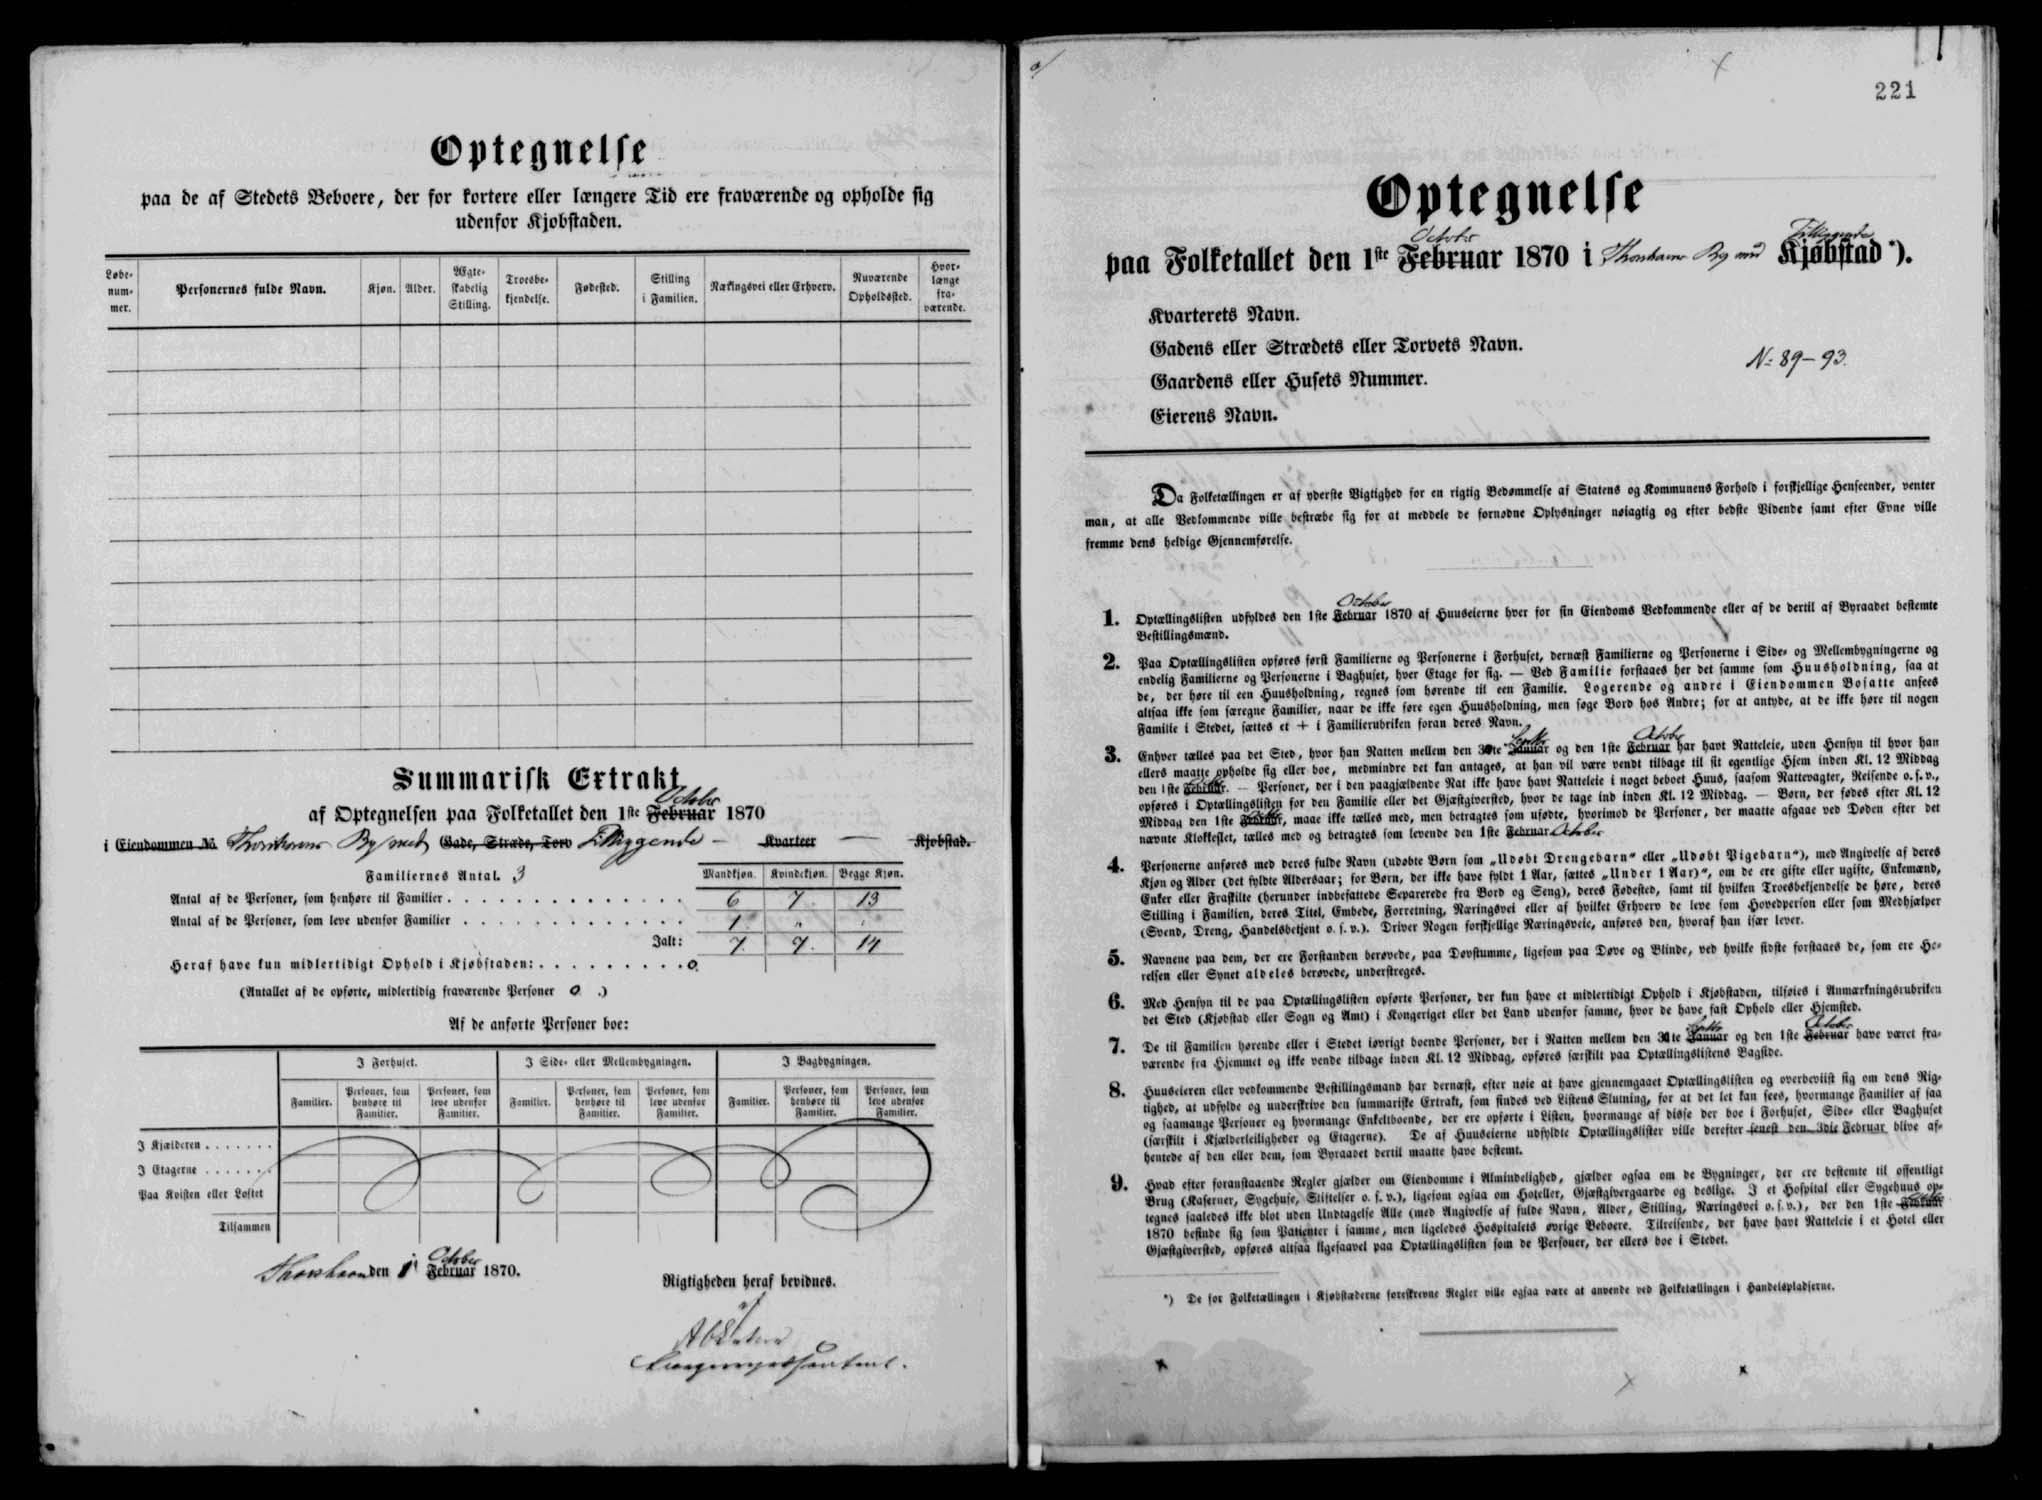 Optegnelse
paa de af Stedets Beboere, der for kortere eller længere Tid ere fraværende og opholde sig
udenfor Kjøbstaden.
Løbe-
num-
mer.
Personernes fulde Navn.
Kjøn.
Alder.
Ægte-
skabelig
Stilling.
Troesbe-
kjendelse.
Fødested.
Stilling
i Familien.
Næringsvei eller Erhverv.
Nuværende
Opholdssted.
Hvor-
længe
fra-
værende.
Summarisk Extrakt
October
af Optegnelsen paa Folketallet den 1ste Februar 1870
i Eiendommen No. Thorshavns By med Gade, Stræde, Torv Tilliggende – Kvarteer — Kjøbstad.
Familiernes Antal. 3
Mandkjøn. Kvindekjøn. Begge Kjøn.
Antal af de Personer, som henhøre til Familier 6 7 13
Antal af de Personer, som leve udenfor Familier 1 "
Ialt: 7. 7. 14
Heraf have kun midlertidigt Ophold i Kjøbstaden: 0.
(Antallet af de opførte, midlertidig fraværende Personer 0 .)
Af de anførte Personer boe:
I Forhuset.
I Side- eller Mellembygningen.
I Bagbygningen.
Familier.
Personer, som
henhøre til
Familier.
Personer, som
leve udenfor
Familier.
Familier.
Personer, som
henhøre til
Familier.
Personer, som
leve udenfor
Familier.
Familier.
Personer, som
henhøre til
Familier.
Personer, som
leve udenfor
Familier.
I Kjælderen
I Etagerne
Paa Kvisten eller Loftet
Tilsammen
October
Thorshavn den 1 Februar 1870.
Rigtigheden heraf bevidnes.
221
Optegnelse
October Tilliggende
paa Folketallet den 1ste Februar 1870 i Thorshavns By med Kjøbstad *).
Kvarterets Navn.
Gadens eller Strædets eller Torvets Navn.
No 89-93.
Gaardens eller Husets Nummer.
Eierens Navn.
Da Folketællingen er af yderste Vigtighed for en rigtig Bedømmelse af Statens og Kommunens Forhold i forskjellige Henseender, venter
man, at alle Vedkommende ville bestræbe sig for at meddele de fornødne Oplysninger nøiagtig og efter bedste Vidende samt efter Evne ville
fremme dens heldige Gjennemførelse.
October
1. Optællingslisten udfyldes den 1ste Februar 1870 af Huuseierne hver for sin Eiendoms Vedkommende eller af de dertil af Byraadet bestemte
Bestillingsmænd.
2. Paa Optællingslisten opføres først Familierne og Personerne i Forhuset, dernæst Familierne og Personerne i Side- og Mellembygningerne og
endelig Familierne og Personerne i Baghuset, hver Etage for sig. — Ved Familie forstaaes her det samme som Huusholdning, saa at
de, der høre til een Huusholdning, regnes som hørende til een Familie. Logerende og andre i Eiendommen Bosatte ansees
altsaa ikke som særegne Familier, naar de ikke føre egen Huusholdning, men søge Bord hos Andre; for at antyde, at de ikke høre til nogen
Familie i Stedet, sættes et + i Familierubriken foran deres Navn.
Septbr October
3. Enhver tælles paa det Sted, hvor han Natten mellem den 30te Januar og den 1ste Februar har havt Natteleie, uden Hensyn til hvor han
ellers maatte opholde sig eller boe, medmindre det kan antages, at han vil være vendt tilbage til sit egentlige Hjem inden Kl. 12 Middag
den 1ste Februar. — Personer, der i den paagjældende Nat ikke have havt Natteleie i noget beboet Huus, saasom Nattevagter, Reisende o. s. v.,
opføres i Optællingslisten for den Familie eller det Gjæstgiversted, hvor de tage ind inden Kl. 12 Middag. — Børn, der fødes efter Kl. 12
Middag den 1ste Februar, maae ikke tælles med, men betragtes som ufødte, hvorimod de Personer, der maatte afgaae ved Døden efter det
nævnte Klokkeslet, tælles med og betragtes som levende den 1ste Februar October
4. Personerne anføres med deres fulde Navn (udøbte Børn som „Udøbt Drengebarn“ eller „Udøbt Pigebarn“), med Angivelse af deres
Kjøn og Alder (det fyldte Aldersaar; for Børn, der ikke have fyldt 1 Aar, sættes „Under 1 Aar)“, om de ere gifte eller ugifte, Enkemænd,
Enker eller Fraskilte (herunder indbefattede Separerede fra Bord og Seng), deres Fødested, samt til hvilken Troesbekjendelse de høre, deres
Stilling i Familien, deres Titel, Embede, Forretning, Næringsvei eller af hvilket Erhverv de leve som Hovedperson eller som Medhjælper
(Svend, Dreng, Handelsbetjent o. s. v.). Driver Nogen forskjellige Næringsveie, anføres den, hvoraf han især lever.
5. Navnene paa dem, der ere Forstanden berøvede, paa Døvstumme, ligesom paa Døve og Blinde, ved hvilke sidste forstaaes de, som ere Hø-
relsen eller Synet aldeles berøvede, understreges.
6. Med Hensyn til de paa Optællingslisten opførte Personer, der kun have et midlertidigt Ophold i Kjøbstaden, tilføies i Anmærkningsrubriken
det Sted (Kjøbstad eller Sogn og Amt) i Kongeriget eller det Land udenfor samme, hvor de have fast Ophold eller Hjemsted.
Septbr October
7. De til Familien hørende eller i Stedet iøvrigt boende Personer, der i Natten mellem den 30te Januar og den 1ste Februar have været fra-
værende fra Hjemmet og ikke vende tilbage inden Kl. 12 Middag, opføres særskilt paa Optællingslistens Bagside.
8. Huuseieren eller vedkommende Bestillingsmand har dernæst, efter nøie at have gjennemgaaet Optællingslisten og overbeviist sig om dens Rig-
tighed, at udfylde og underskrive den summariske Extrakt, som findes ved Listens Slutning, for at det let kan sees, hvormange Familier af saa
og saamange Personer og hvormange Enkeltboende, der ere opførte i Listen, hvormange af disse der boe i Forhuset, Side- eller Baghuset
(særskilt i Kjælderleiligheder og Etagerne). De af Huuseierne udfyldte Optællingslister ville derefter senest den 3die Februar blive af-
hentede af den eller dem, som Byraadet dertil maatte have bestemt.
9. Hvad efter foranstaaende Regler gjælder om Eiendomme i Almindelighed, gjælder ogsaa om de Bygninger, der ere bestemte til offentligt
Brug (Kaserner, Sygehuse, Stiftelser o. s. v.), ligesom ogsaa om Hoteller, Gjæstgivergaarde og deslige. I et Hospital eller Sygehuus op-
tegnes saaledes ikke blot uden Undtagelse Alle (med Angivelse af fulde Navn, Alder, Stilling, Næringsvei o. s. v.), der den 1ste Februar
1870 befinde sig som Patienter i samme, men ligeledes Hospitalets øvrige Beboere. Tilreisende, der have havt Natteleie i et Hotel eller
Gjæstgiversted, opføres altsaa ligesaavel paa Optællingslisten som de Personer, der ellers boe i Stedet.
*) De for Folketællingen i Kjøbstæderne foreskrevne Regler ville ogsaa være at anvende ved Folketællingen i Handelspladserne.